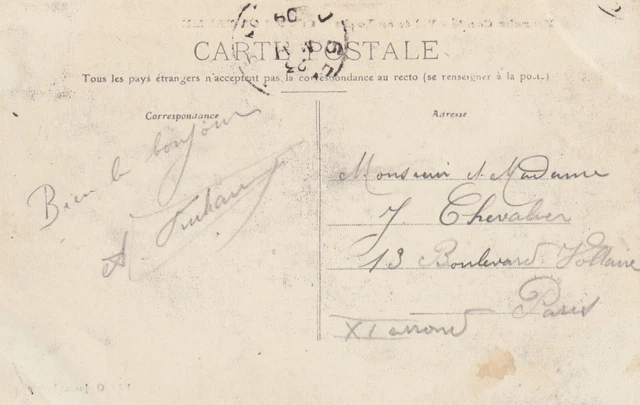 CARTE POSTALE
Tous les pays étrangers n'acceptent pas la correspondance au recto (se renseigner à la poste)
Correspondance
Bien le bonjour
A.
Adresse
Monsieur et Madame
J. Chevalier
13 Boulevard Voltaire
Paris
XI arrond